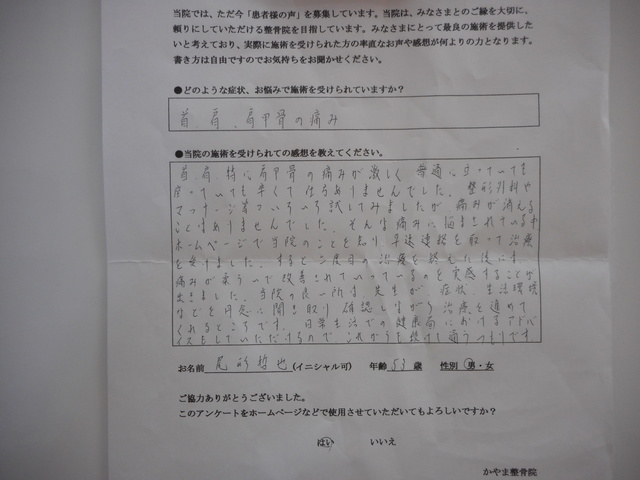 当院では、ただ今「患者様の声」を募集しています。当院は、みなさまとのご縁を大切に、
頼りにしていただける整骨院を目指しています。みなさまにとって最良の施術を提供した
いと考えており、実際に施術を受けられた方の率直なお声や感想が何よりの力となります。
書き方は自由ですのでお気持ちをお聞かせください。
●どのような症状、お悩みで施術を受けられていますか?
首、肩、肩甲骨の痛み
●当院の施術を受けられての感想を教えてください。
首、肩、特に肩甲骨の痛みが激しく普通に立っていても
座っていても辛くて仕方ありませんでした。整形外科や
マッサージ等でいろいろ試してみましたが痛みが消える
ことはありませんでした。そんな痛みに悩まされている中
ホームページで当院のことを知り早速連絡を取って治療
を受けました。すると二度目の治療を終えた後には
痛みが和らいで改善されていっているのを実感することが
出来ました。当院の良い所は、先生が、症状、生活環境
などを丹念に聞き取り確認しながら治療を進めて
くれるところです。日常生活での健康面におけるアドバ
イスもしていただけるのでこれからも続けて通うつもりです
お名前 尾 哲也 (イニシャル可) 年齢 53 歳 性別 男・女
ご協力ありがとうございました。
このアンケートをホームページなどで使用させていただいてもよろしいですか?
はい いいえ
かやま整骨院